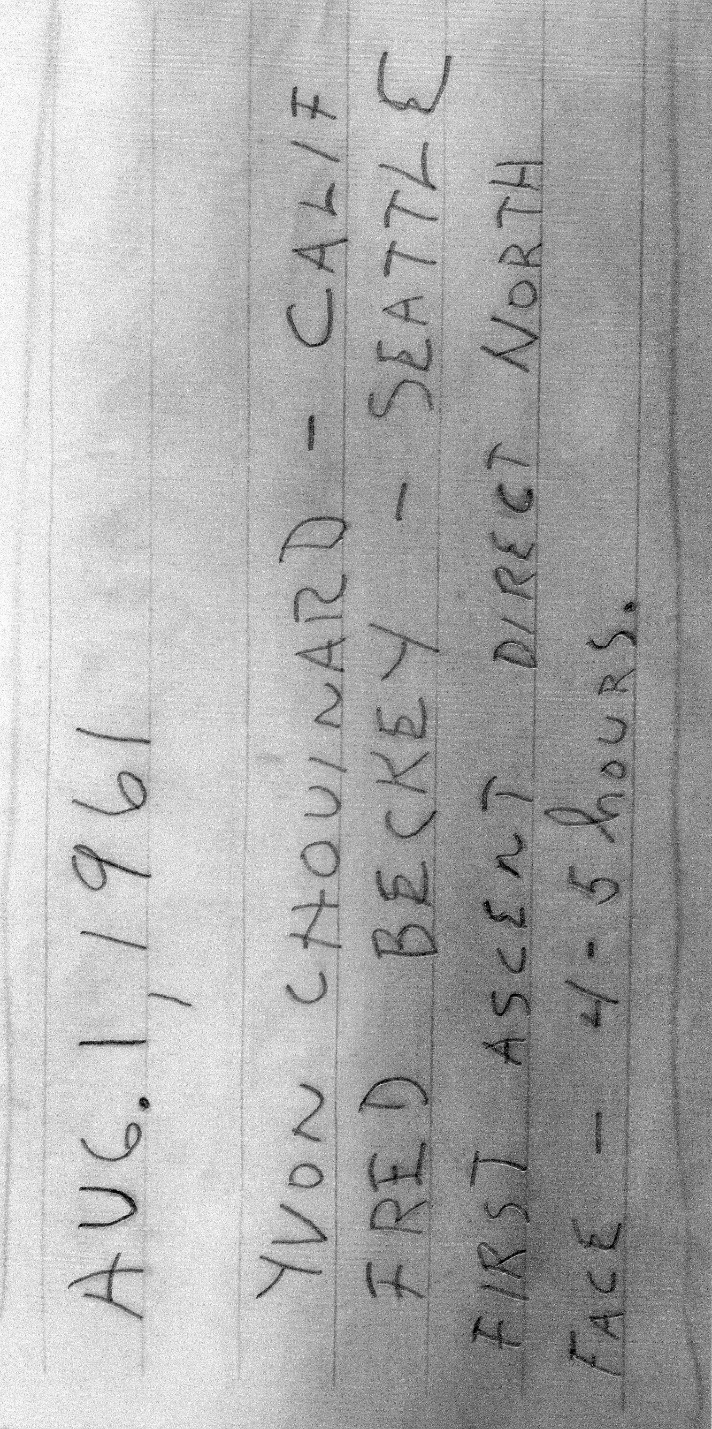 AUG. 1, 1961
YVON CHOUINARD - CALIF
FRED BECKEY - SEATTLE
FIRST ASCENT DIRECT NORTH
FACE - 4-5 hOURS.